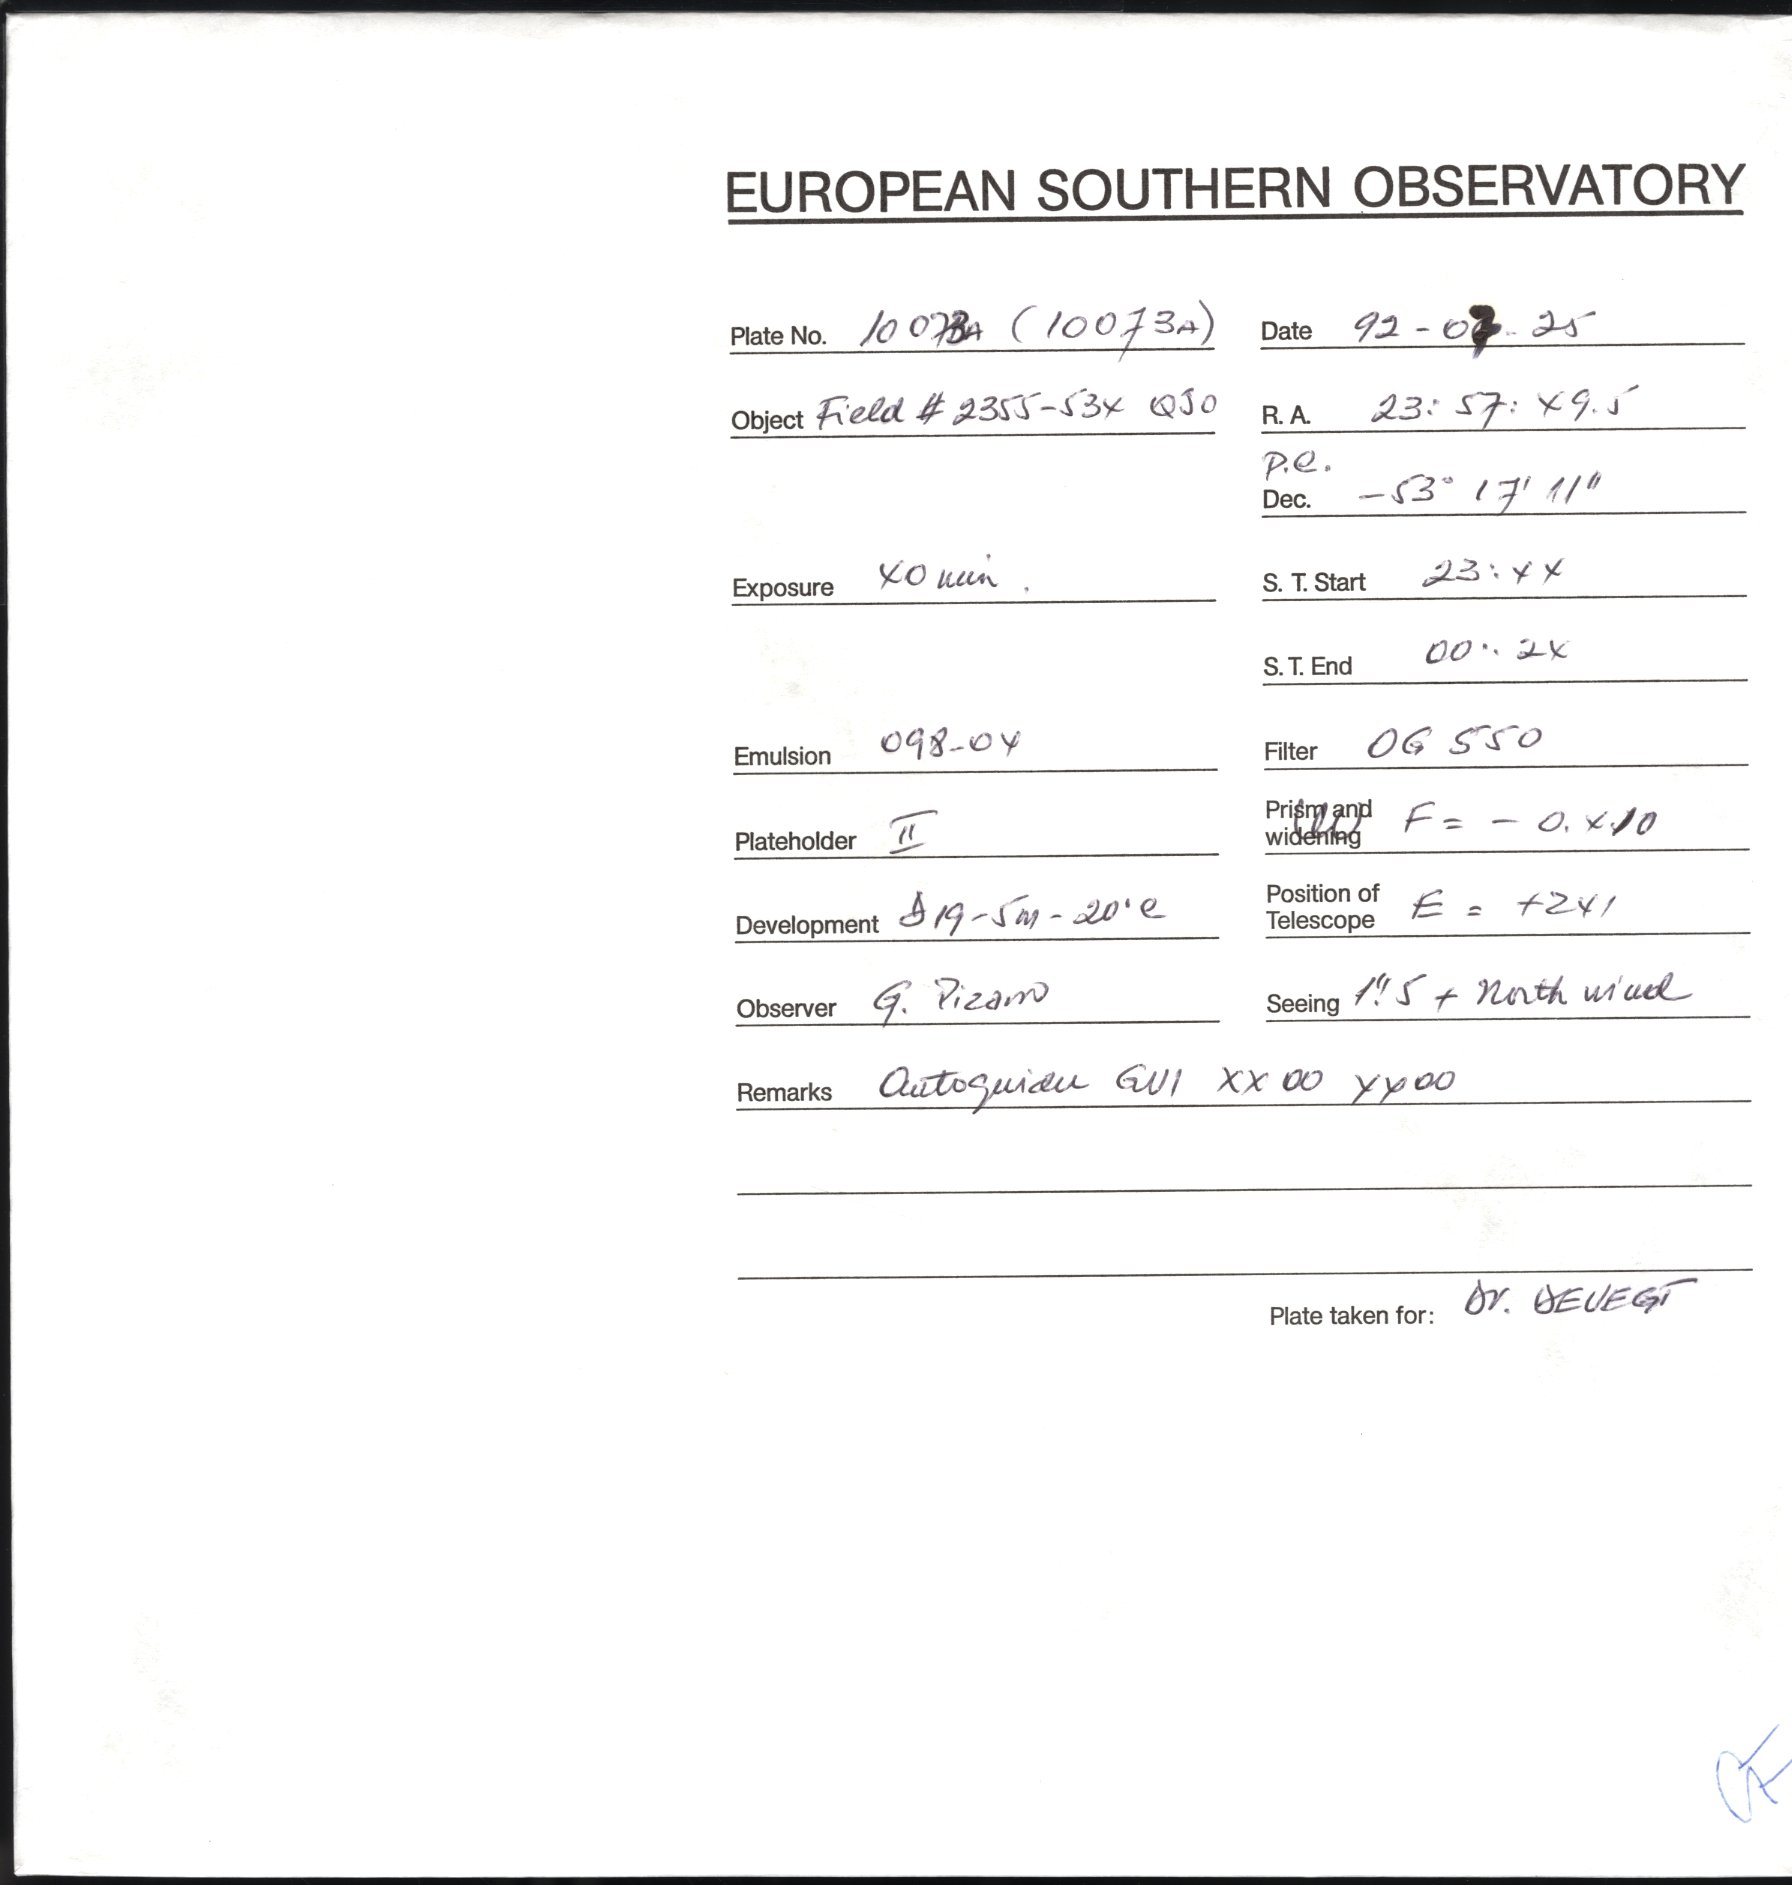 EUROPEAN SOUTHERN OBSERVATORY
Plate No. 10073A (10073A)
Date 92-07-25
Object Field # 2355-534 QSO
R. A. 23: 57: 49.5
P.C.
Dec. -53° 17' 11"
Exposure 40 min.
S. T. Start 23:44
S. T. End 00:24
Emulsion 098-04
Filter OG 550
Plateholder II
Prism and widening F = - 0.410
Development D19-5m-20°C
Position of Telescope E = +241
Observer G. Pizarro
Seeing 1".5 + North wind
Remarks Autoguider GUI XX 00 YY00
Plate taken for: Dr. DEVEGT